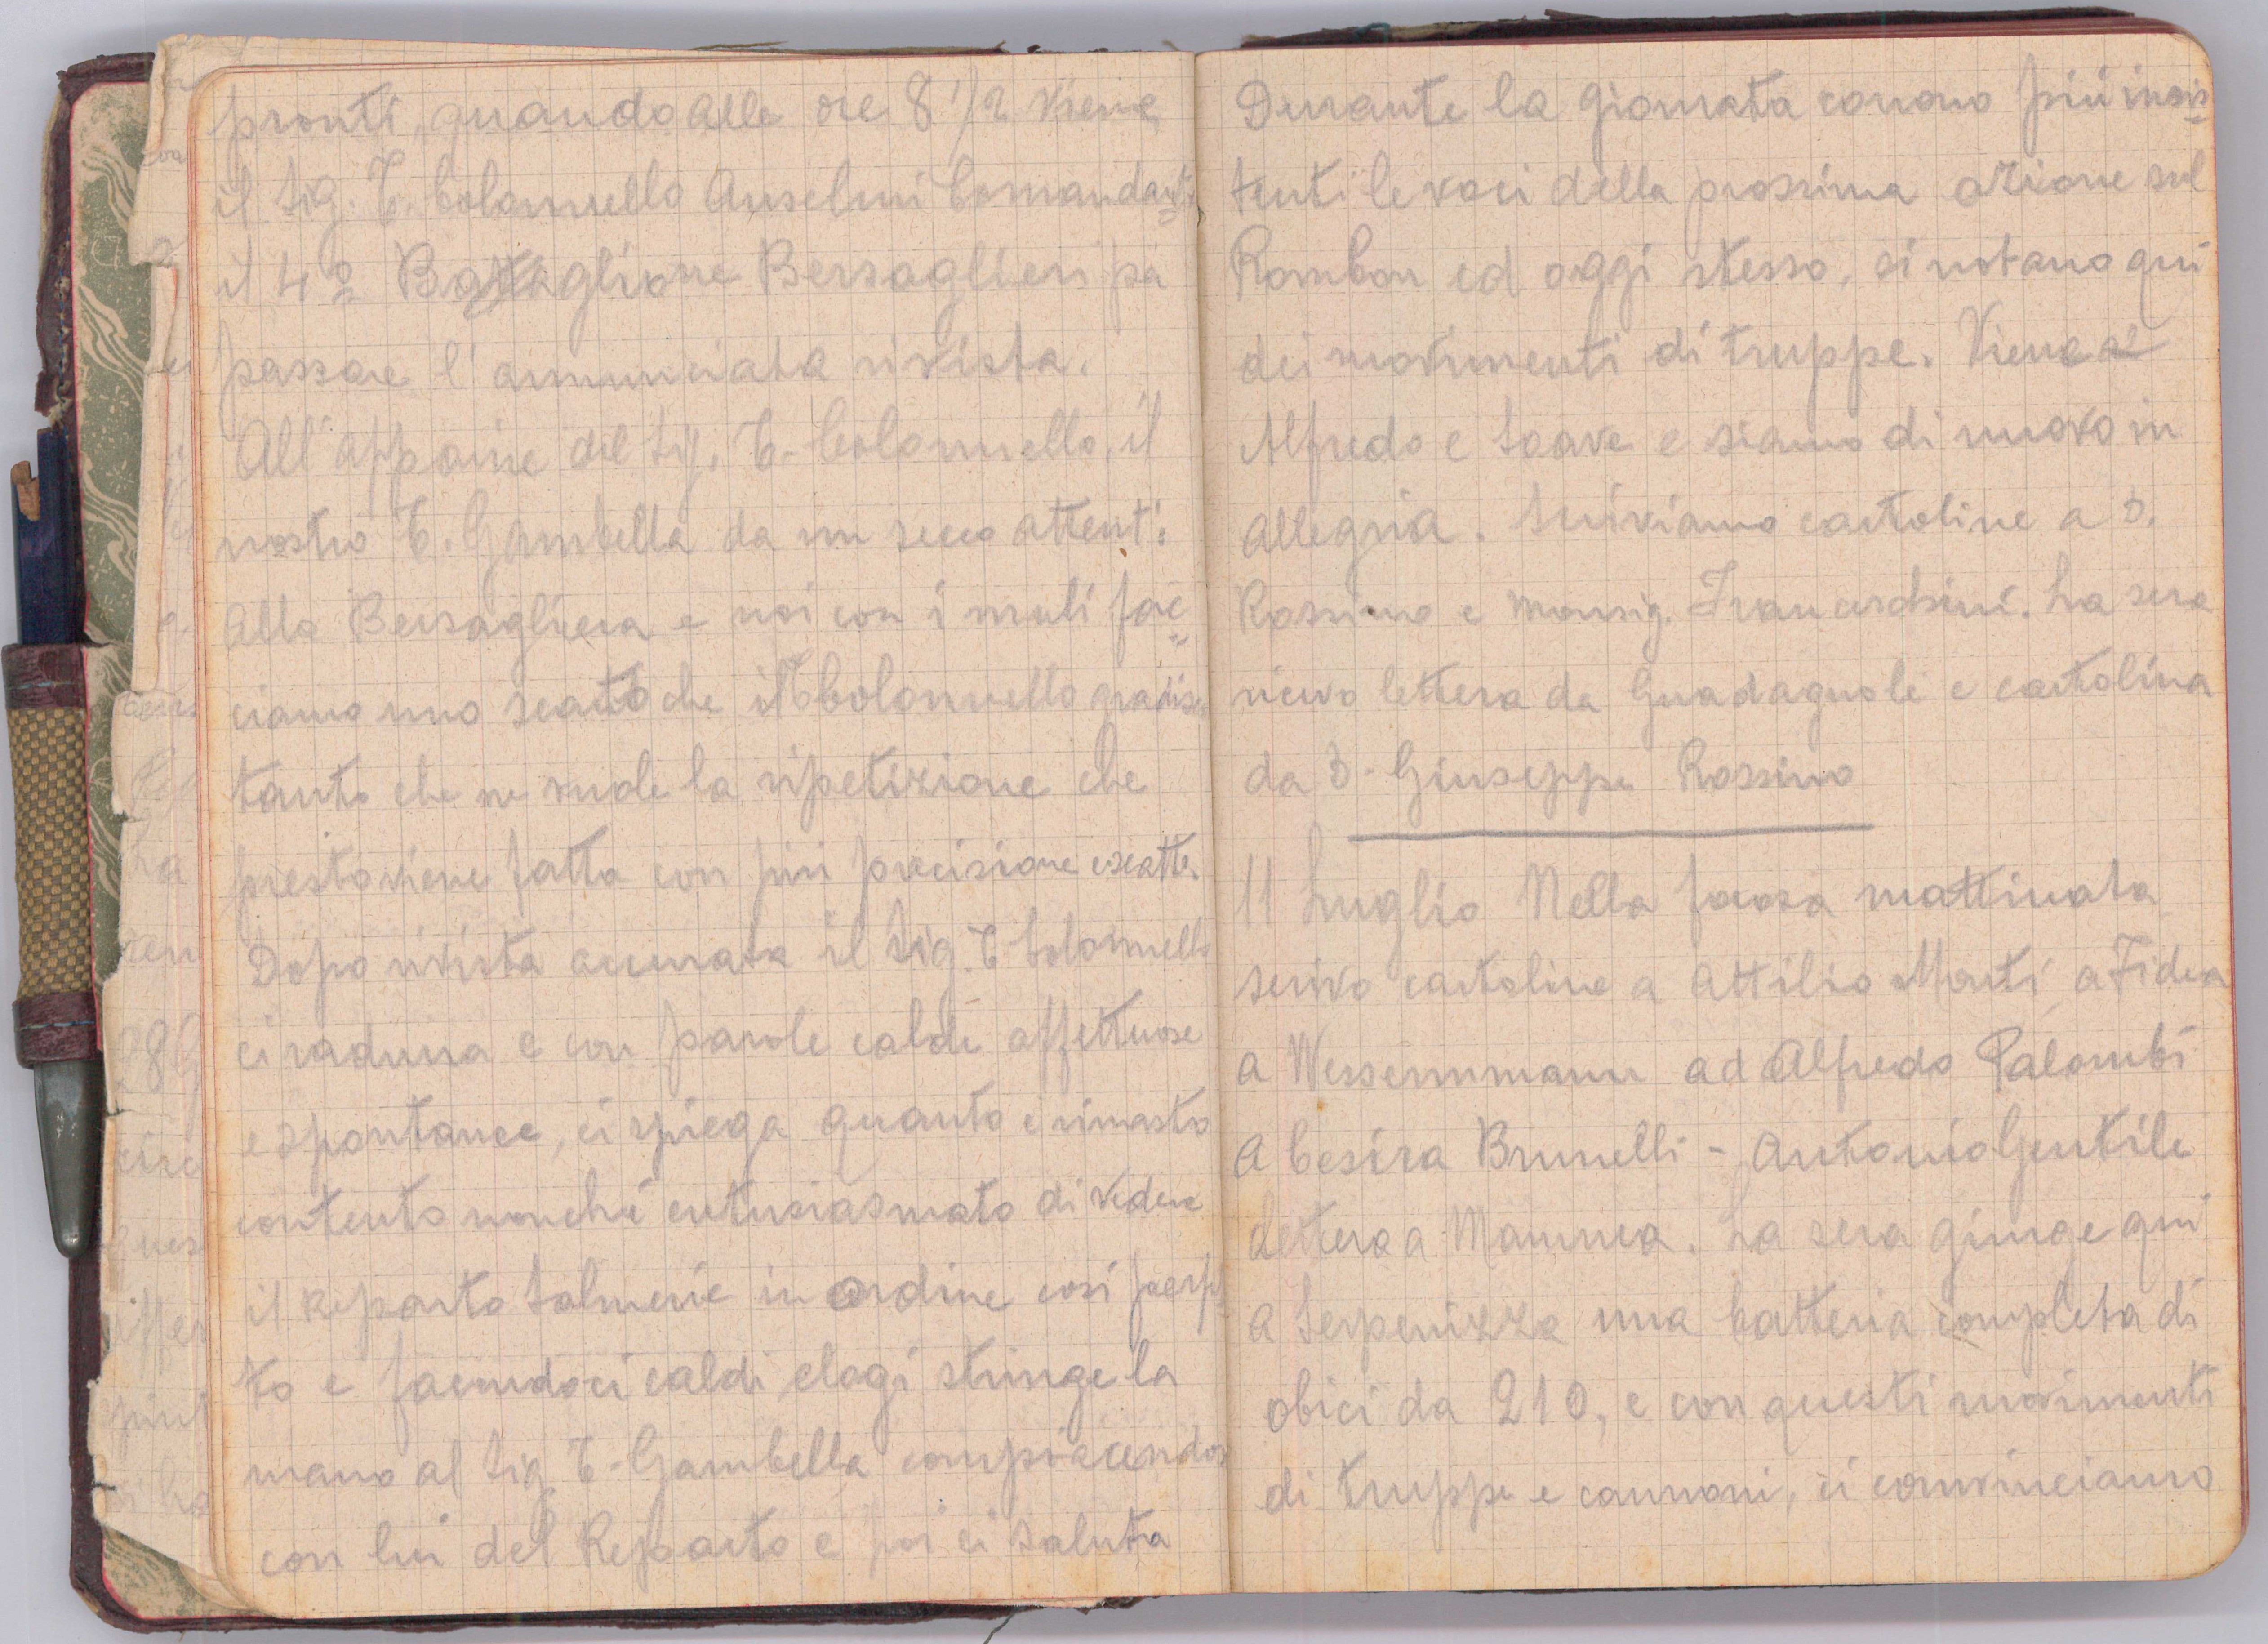 pronti, quando alle ore 8 1/2 viene
il Sig. T. Colonnello Anselmi Comandante
il 4º Battaglione Bersaglieri pa
passare l'annunciata rivista.
All'apparire del Sig. T. Colonnello, il
nostro T. Gambella da un secco attenti
alla Bersagliera e noi con i muli fac=
ciamo uno scatto che il T Colonnello gradisce
tanto che ne vuole la ripetizione che
presto viene fatta con più precisione e scatto.
Dopo rivista accurata il Sig. T Colonnello
ci raduna e con parole calde affettuose
e spontanee, ci spiega quanto è rimasto
contento nonchè entusiasmato di vedere
il Reparto Salmerie in ordine così perfe=
to e facendoci caldi elogi stringe la
mano al Sig T. Gambella compiacendosi
con lui del Reparto e poi ci saluta
Durante la giornata corrono più insis=
tenti le voci della prossima azione sul
Rombon ed oggi stesso, si notano qui
dei movimenti di truppe. Viene
Alfredo e Soave e siamo di nuovo in
allegria. Scriviamo cartoline a D.
Rossino e Monsig. Franceschini. La sera
ricevo lettera da Guadagnoli e cartolina
da D. Giuseppe Rossino
11 Luglio Nella mattinata
scrivo cartoline a Attilio Monti, a Fidea
a Wessernmann ad Alfredo Palombi
a Cesira Brunelli - Antonio Gentile
Lettera a Mamma. La sera giunge qui
a Serpenizza una batteria completa di
obici da 210, e con questi movimenti
di truppe e cannoni, ci convinciamo